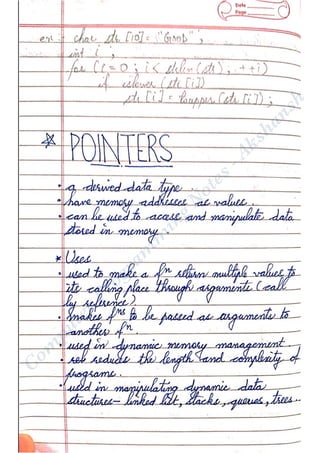 Date
Page
ex:- char str [10] = "GooD" ;
int i ;
for (i=0 ; i< strlen (str) , ++i)
if islower (str [i])
str [i] = toupper (str [i]) ;
POINTERS
• a derived data type .
• have memory addresses as values .
• can be used to access and manipulate data
stored in memory .
* Uses
• used to make a fⁿ return multiple values to
its calling place through arguments (call
by reference)
• makes fⁿs to be passed as arguments to
another fⁿ.
• used in dynamic memory management .
• reduces the length and complexity of
programs .
• used in manipulating dynamic data
structures- linked list, stacks, queues, trees..